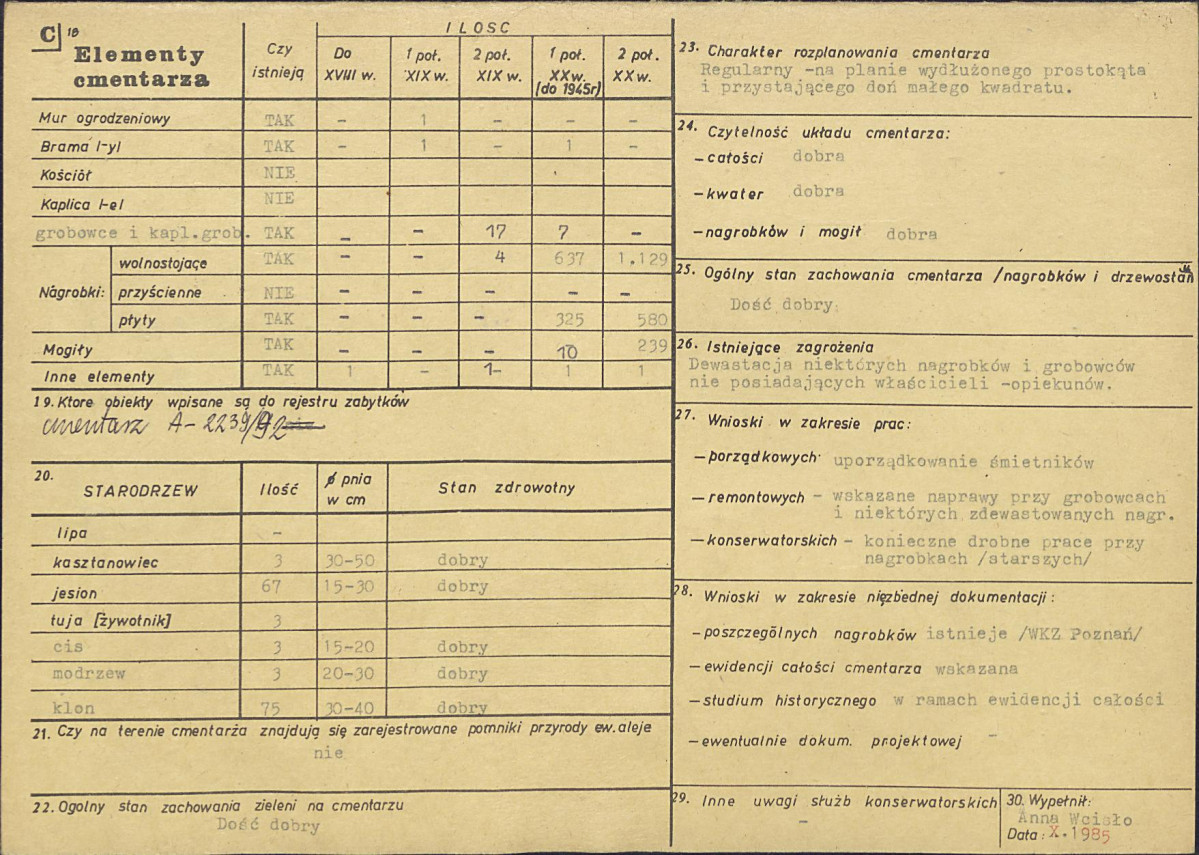 C 18
Elementy cmentarza
Czy istnieją
ILOSC
Do XVIII w.
1 poł. XIX w.
2 poł. XIX w.
1 poł. XX w. (do 1945r)
2 poł. XX w.
Mur ogrodzeniowy TAK - 1 - - -
Brama /-y/ TAK - 1 - 1 -
Kościół NIE
Kaplica /-e/ NIE
grobowce i kapl.grob. TAK - - 17 7 -
Nagrobki:
wolnostojące TAK - - 4 637 1.129
przyścienne NIE - - - - -
płyty TAK - - - 325 580
Mogiły TAK - - - 10 239
Inne elementy TAK 1 - 1- 1 1
19. Ktore obiekty wpisane są do rejestru zabytków
cmentarz A-2239/92
20. STARODRZEW Ilość ø pnia w cm Stan zdrowotny
lipa -
kasztanowiec 3 30-50 dobry
jesion 67 15-30 dobry
tuja [żywotnik] 3
cis 3 15-20 dobry
modrzew 3 20-30 dobry
klon 75 30-40 dobry
21. Czy na terenie cmentarza znajdują się zarejestrowane pomniki przyrody ew. aleje
nie
22. Ogolny stan zachowania zieleni na cmentarzu
Dość dobry
23. Charakter rozplanowania cmentarza
Regularny -na planie wydłużonego prostokąta
i przystającego doń małego kwadratu.
24. Czytelność układu cmentarza:
- całości dobra
- kwater dobra
- nagrobków i mogił dobra
25. Ogólny stan zachowania cmentarza /nagrobków i drzewostan
Dość dobry
26. Istniejące zagrożenia
Dewastacja niektórych nagrobków i grobowców
nie posiadających właścicieli -opiekunów.
27. Wnioski w zakresie prac:
- porządkowych uporządkowanie śmietników
- remontowych - wskazane naprawy przy grobowcach
i niektórych zdewastowanych nagr.
- konserwatorskich - konieczne drobne prace przy
nagrobkach /starszych/
28. Wnioski w zakresie niezbednej dokumentacji:
- poszczególnych nagrobków istnieje /WKZ Poznań/
- ewidencji całości cmentarza wskazana
- studium historycznego w ramach ewidencji całości
- ewentualnie dokum. projektowej -
29. Inne uwagi służb konserwatorskich
-
30. Wypełnił:
Anna Wcisło
Data: X.1985